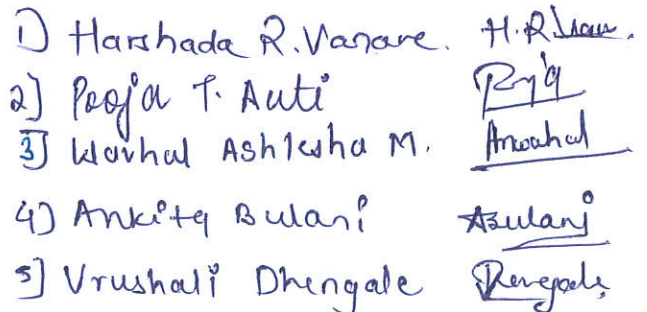 1) Harshada R. Vanare. H.R.
2] Pooja T. Auti Pooja
3] Warhal Ashlesha M. Amwahal
4) Ankita Bulani ABulani
5] Vrushali Dhengale